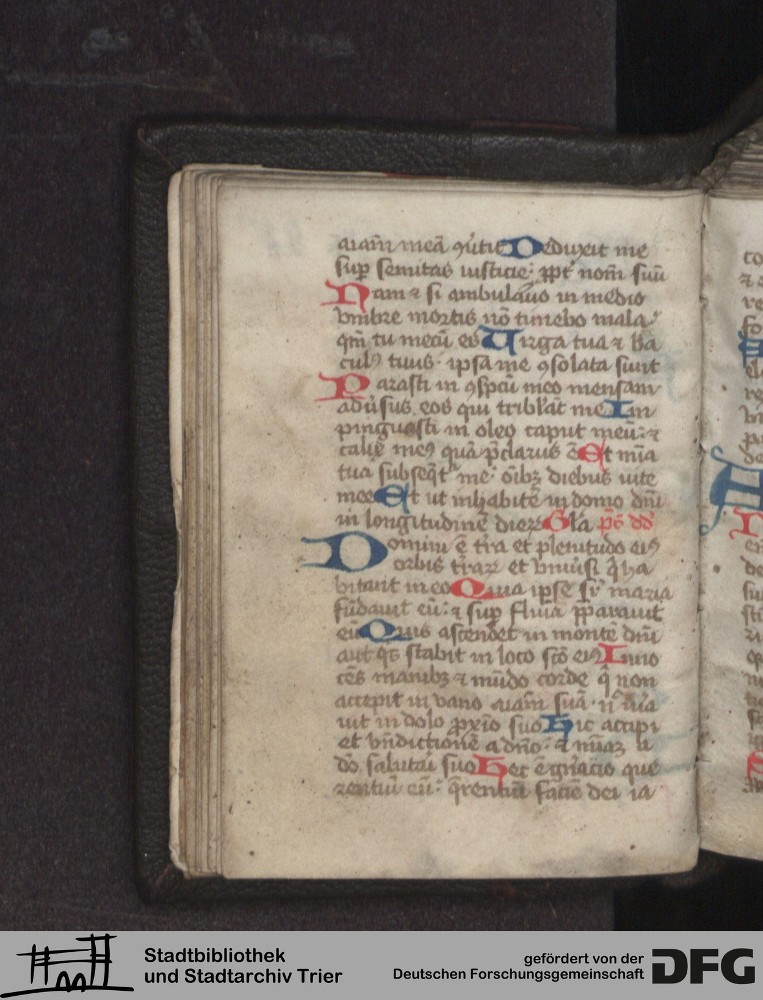 aiam meā ꝯūtit Deduxit me
sup semitas iusticie: ꝓpt nom̄ suū
Nam ⁊ si ambulauo in medio
vmbre mortis nō timebo mala
qm̄ tu mecū es Uirga tua ⁊ ba
culꝰ tuus: ipsa me ꝯsolata sunt
Parasti in ꝯspcū meo mensam
adūsus eos qui tribłāt me In
pinguasti in oleo caput meū: ⁊
calix meꝰ quā p̄clarus ē Et mīa
tua subseqt me: oībꝫ diebus uite
mee Et ut inhabitē in domo dn̄i
in longitudinē dieꝝ Gla ps̄ dd
Domini ē tr̄a et plenitudo eiꝰ
orbis tr̄aꝝ et vniūsi q̄ ha
bitant in eo Quia ipse sr̄ maria
fūdauit eū: ⁊ sup flūia p̄parauit
eū Quis ascendet in monte dn̄i
aut qs stabit in loco scō eiꝰ Inno
cēs manibꝫ ⁊ mūdo corde q̄ non
accepit in vano aiam suā: n̄ iura
uit in dolo ꝓxīo suo Hic accipi
et bn̄dictionē a dn̄o: ⁊ mīaꝫ a
dō salutari suo Hec ē gn̄acio que
rentiū eū: q̄rentiū faciē dei ia
Stadtbibliothek
und Stadtarchiv Trier
gefördert von der
Deutschen Forschungsgemeinschaft
DFG